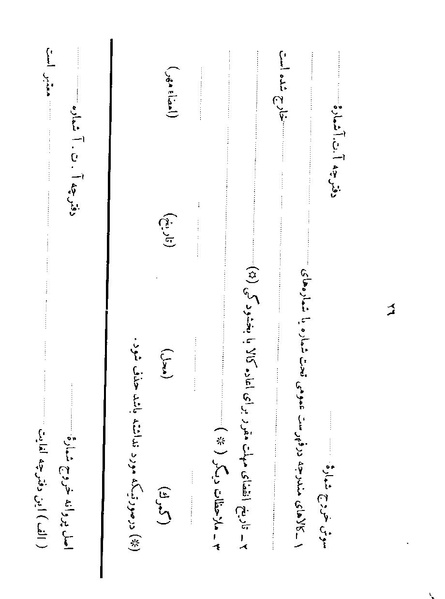 ۲۶
سوش خروج شمارهٔ ........ دفترچه آ.ت.آ شمارهٔ
۱ـ کالاهای مندرجه در فهرست عمومی تحت شماره با شماره‌های ........
........ خارج شده است
۲ ـ تاریخ انقضای مهلت مقرر برای اعاده کالا با بخشودگی (*) ........
۳ ـ ملاحظات دیگر (*) ........
(گمرك) (محل) (تاریخ) (امضاء مهر)
(*) درصورتیکه مورد نداشته باشد حذف شود.
اصل پروانه خروج شمارهٔ ........ دفترچه آ . ت . آ شماره ........
(الف) این دفترچه لغایت ........ معتبر است